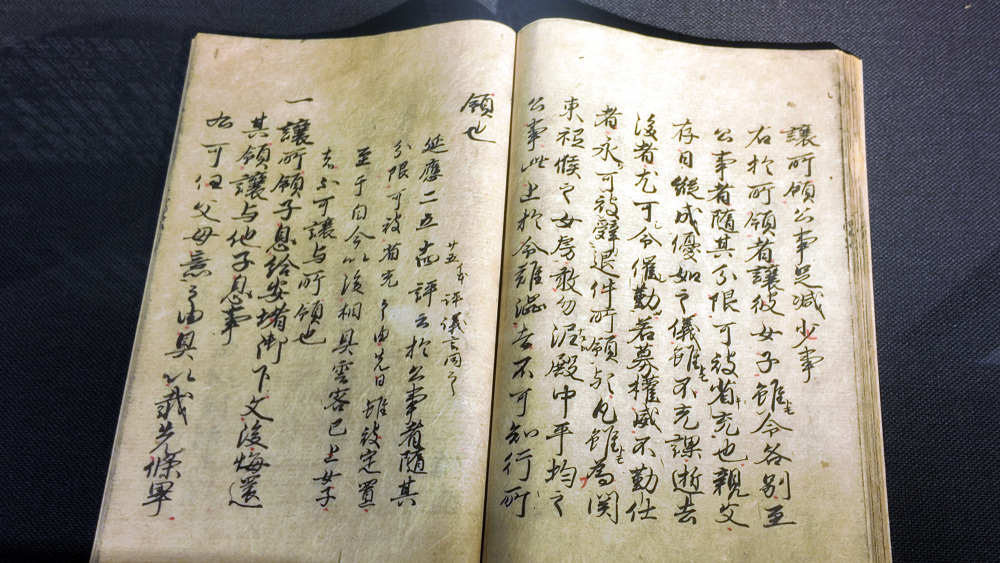 讓所領公事足減少事
右於所領者讓彼女子雖令各別至
公事者隨其分限可被省充也親父
存日縱成優如之儀雖不充課逝去
後者尤可令催勤若募權威不勤仕
者永可被辭退件所領与凡雖為関
東祗候之女房敢勿泥殿中平均之
公事此上於令難澁者不可知行所
領也
廿五 評儀言同之
延應二五 評云於公事者隨其
分限可被省充之由先日雖被定置
至于自今以後相具雲客已上女子
者不可讓与所領也
一 讓所領子息給安堵御下文後悔還
其領讓与他子息事
右可任父母意之由具以載先條畢